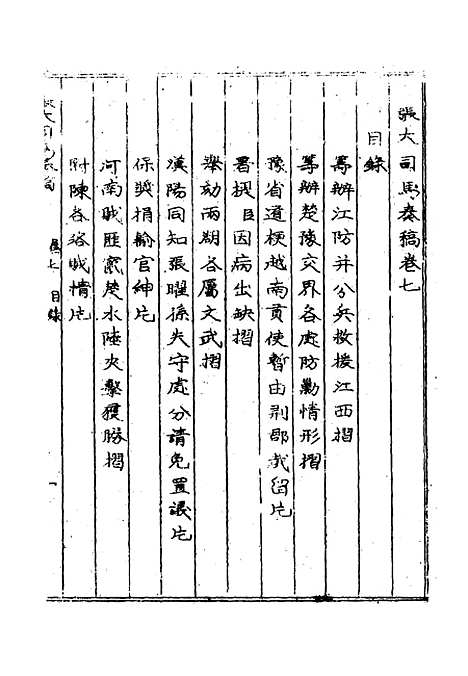 張大司馬奏稿卷七
目錄
籌辦江防并分兵救援江西摺
籌辦楚豫交界各處防勦情形摺
豫省道梗越南貢使暫由荊郡截留片
署撫臣因病出缺摺
舉劾兩湖各屬文武摺
漢陽同知張曜孫失守處分請免置議片
保獎捐輸官紳片
河南賊匪竄楚水陸夾擊獲勝摺
附陳各路賊情片
張大司馬奏稿
卷七 目錄
一